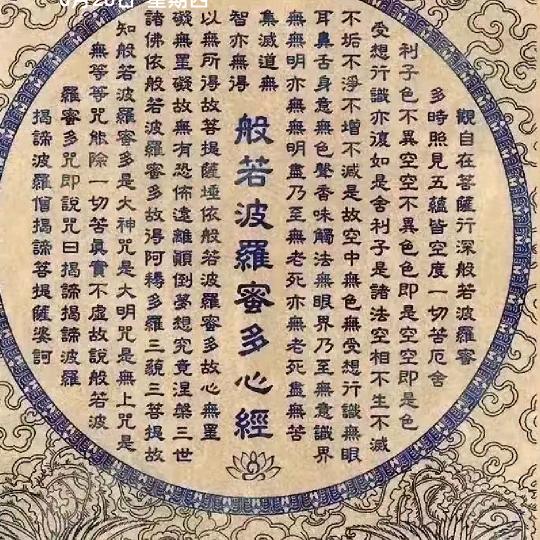 星期四
觀自在菩薩行深般若波羅蜜
多時照見五蘊皆空度一切苦厄舍
利子色不異空空不異色色即是空空即是色
受想行識亦復如是舍利子是諸法空相不生不滅
不垢不淨不增不減是故空中無色無受想行識無眼
耳鼻舌身意無色聲香味觸法無眼界乃至無意識界
無無明亦無無明盡乃至無老死亦無老死盡無苦
集滅道無
智亦無得
般若波羅蜜多心經
以無所得故菩提薩埵依般若波羅蜜多故心無罣
礙無罣礙故無有恐怖遠離顛倒夢想究竟涅槃三世
諸佛依般若波羅蜜多故得阿耨多羅三藐三菩提故
知般若波羅蜜多是大神咒是大明咒是無上咒是
無等等咒能除一切苦真實不虛故說般若波
羅蜜多咒即說咒曰揭諦揭諦波羅
揭諦波羅僧揭諦菩提薩婆訶